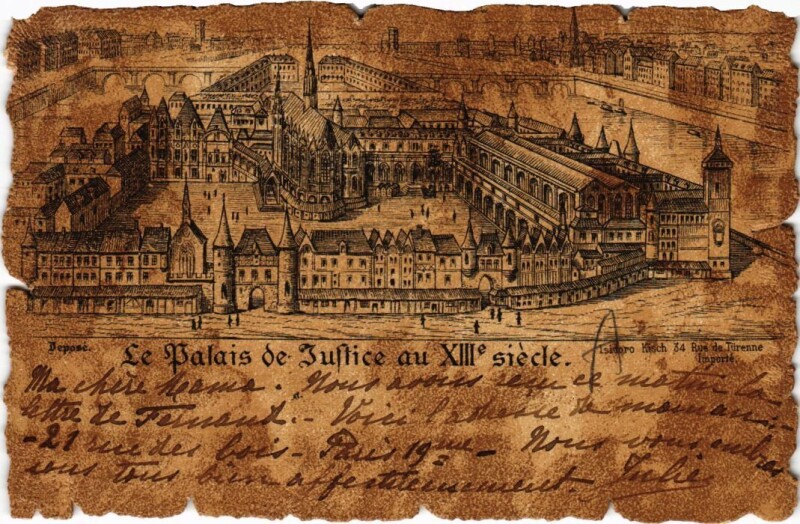 Deposé.
Le Palais de Justice au XIIIe siècle.
Isidoro Kisch 34 Rue de Turenne
Importé.
Ma chère Mama. Nous avons reçu ce matin la
lettre de Fernand. - Voici l'adresse de maman: -
- 21 rue des bois - Paris 19me - Nous vous embras
sons tous bien affectueusement. Julie